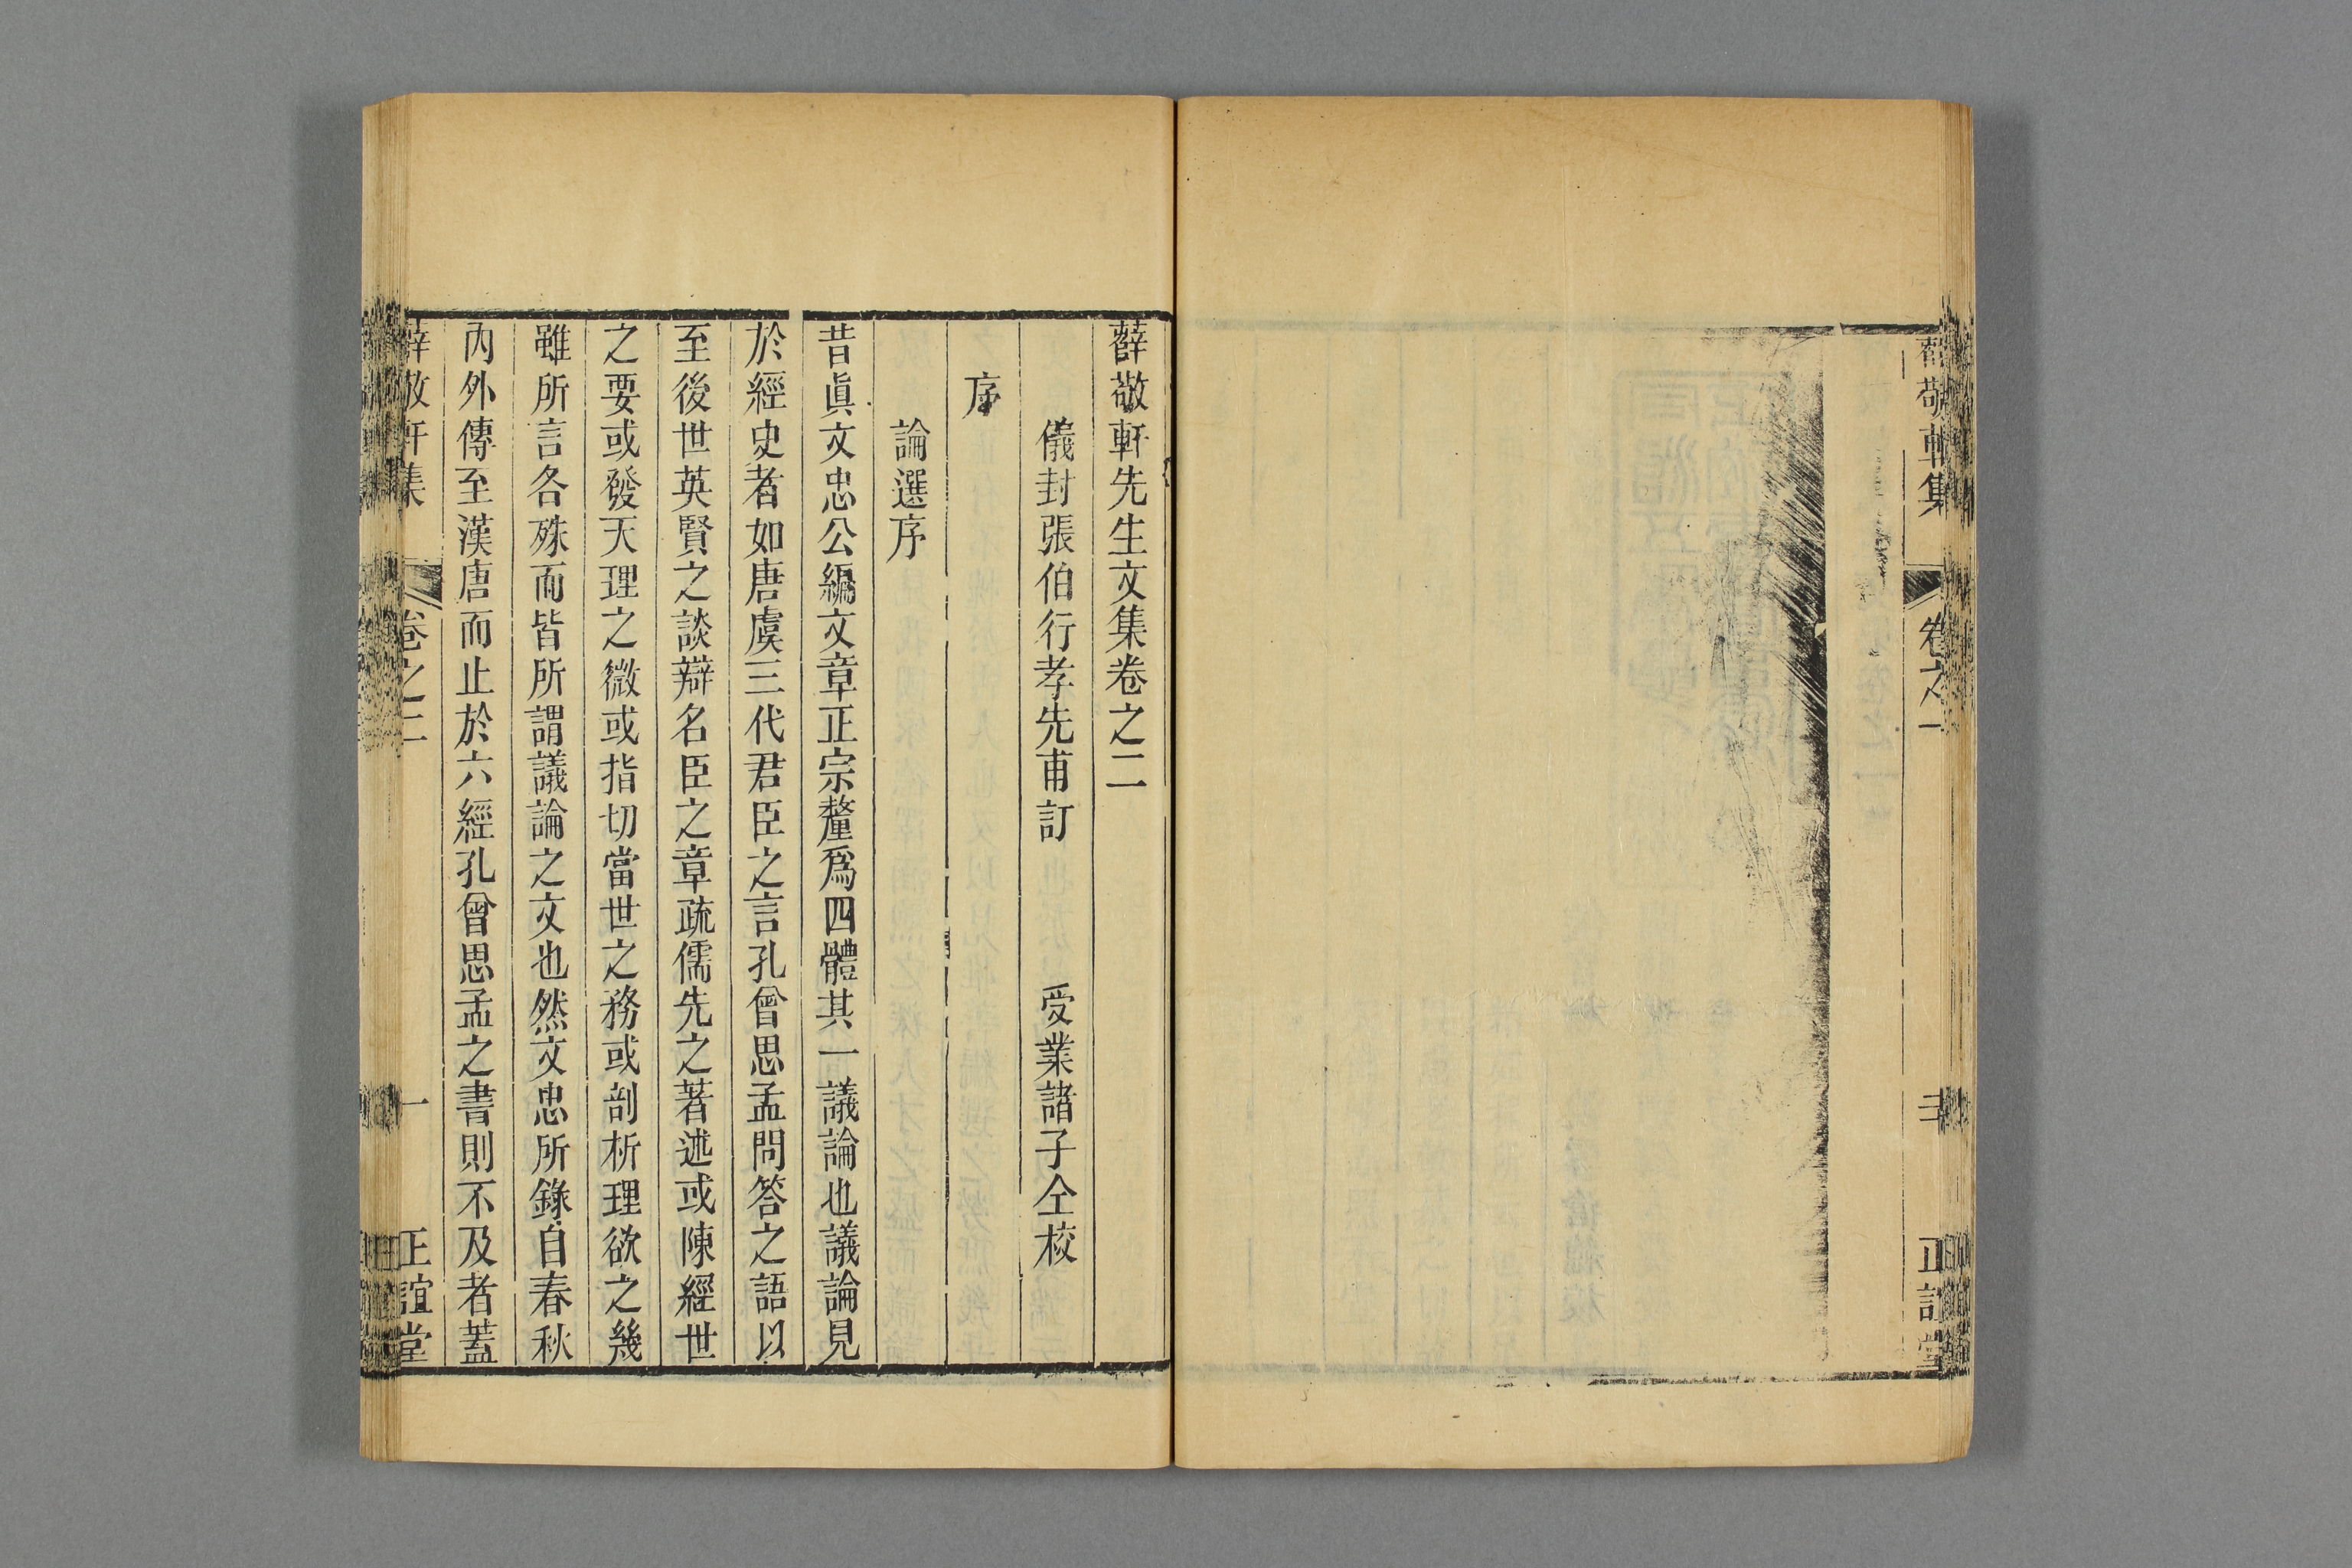 薛敬軒集 卷之一 三 正誼堂
薛敬軒先生文集卷之二
儀封張伯行孝先甫訂 受業諸子仝校
序
論選序
昔眞文忠公編文章正宗釐爲四體其一議論也議論見
於經史者如唐虞三代君臣之言孔曾思孟問答之語以
至後世英賢之談辯名臣之章疏儒先之著述或陳經世
之要或發天理之微或指切當世之務或剖析理欲之幾
雖所言各殊而皆所謂議論之文也然文忠所錄自春秋
內外傳至漢唐而止於六經孔曾思孟之書則不及者蓋
薛敬軒集 卷之二 一 正誼堂